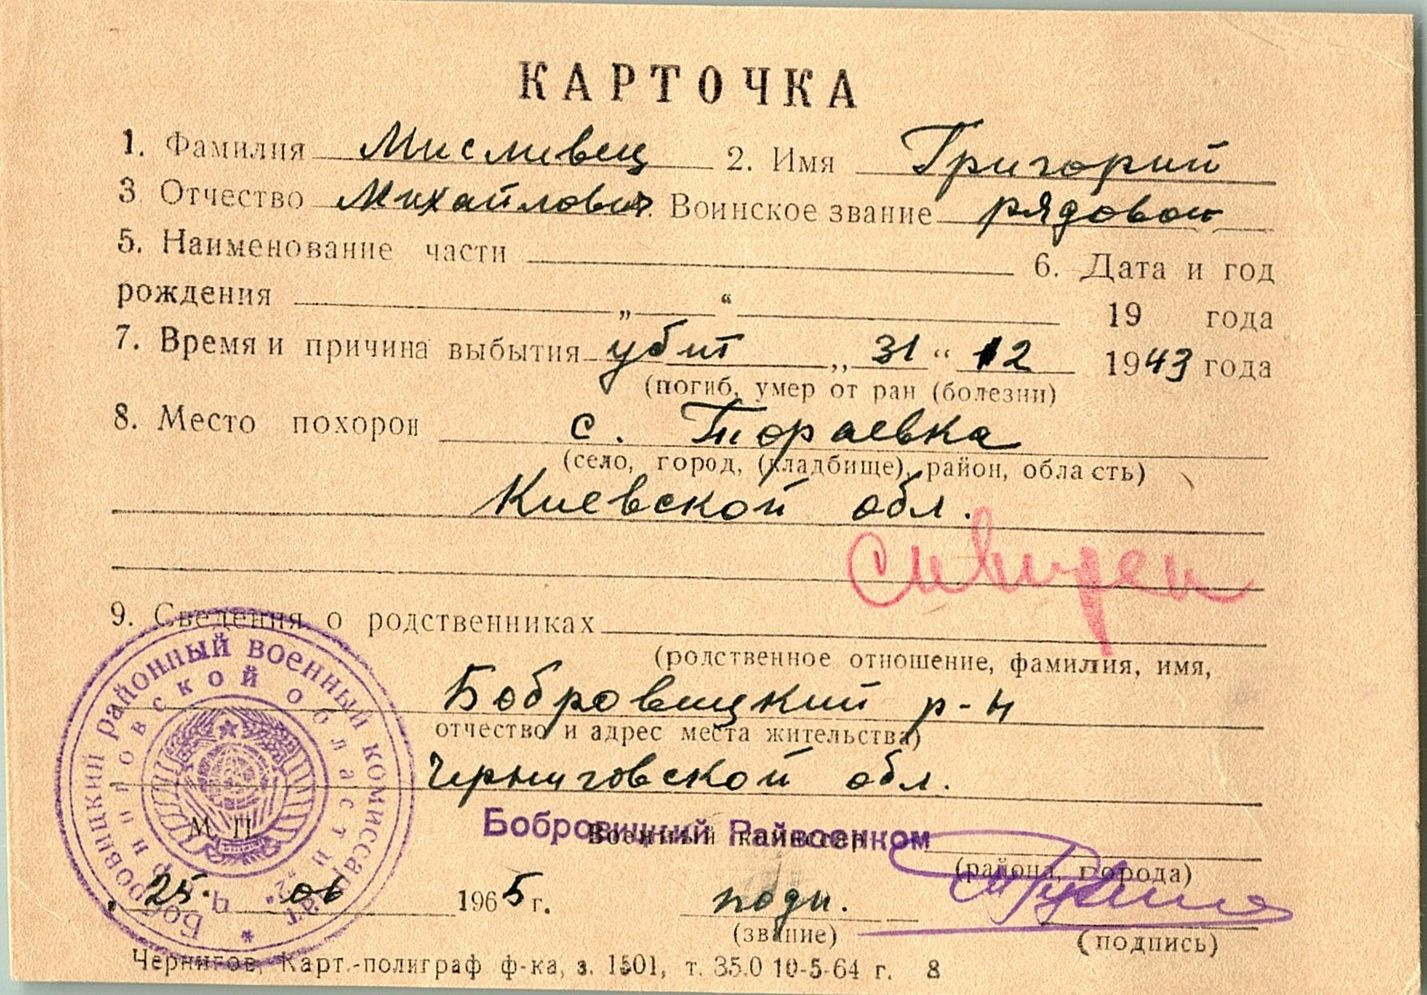 КАРТОЧКА
1. Фамилия Мисливец 2. Имя Григорий
3 Отчество Михайлович. Воинское звание рядовой
5. Наименование части 6. Дата и год
рождения „ “ 19 года
7. Время и причина выбытия убит „31“ 12 1943 года
(погиб, умер от ран (болезни)
8. Место похорон с. Тораевка
(село, город, (кладбище), район, область)
Киевской обл.
9. Сведения о родственниках
(родственное отношение, фамилия, имя,
Бобровицкий р-н
отчество и адрес места жительства)
Черниговской обл.
Бобровицкий районный военный комиссариат
Черниговской области
М. П.
Бобровицкий Райвоенком
Военный комиссар
(района, города)
25. 06 1965 г. подп.
(звание) (подпись)
Чернигов, Карт.-полиграф ф-ка, з. 1501, т. 35.0 10-5-64 г. 8